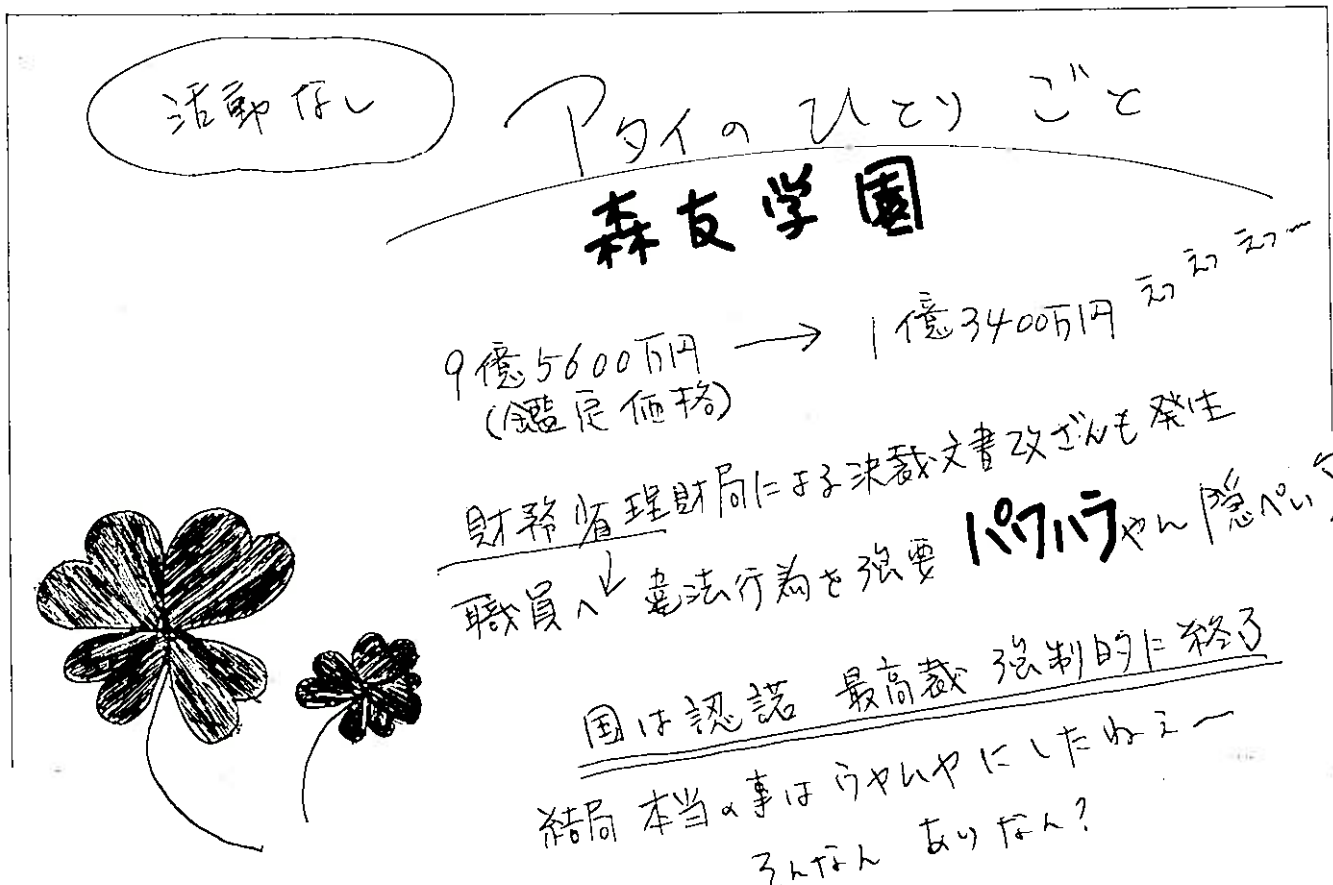 活動なし
アタイのひとりごと
森友学園
9億5600万円 → 1億3400万円 えっ えっ えっー
(鑑定価格)
財務省理財局による決裁文書改ざんも発生
職員へ↓違法行為を強要 パワハラやん 隠ぺい?
国は認諾 最高裁 強制的に終了
結局 本当の事はうやむやにしたねぇー
そんなん ありなん?